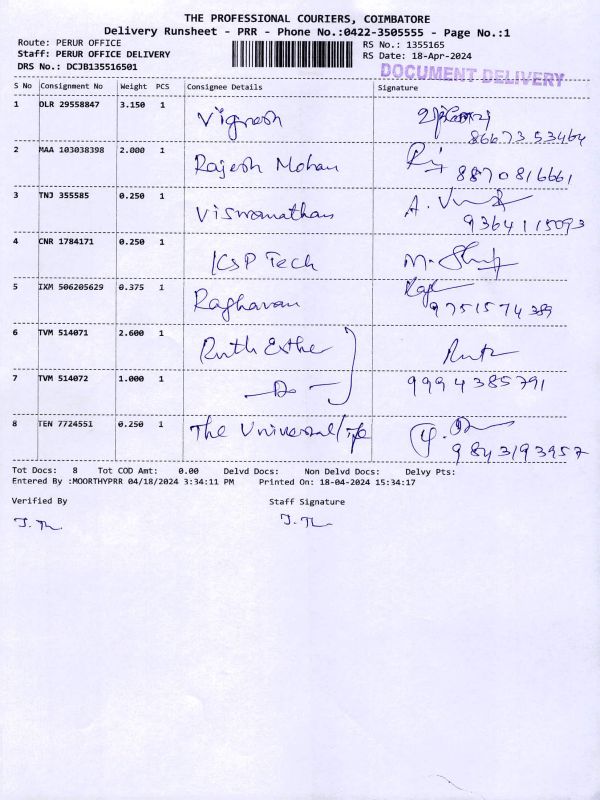 THE PROFESSIONAL COURIERS, COIMBATORE
Delivery Runsheet - PRR - Phone No.:0422-3505555 - Page No.:1
Route: PERUR OFFICE
RS No.: 1355165
Staff: PERUR OFFICE DELIVERY
RS Date: 18-Apr-2024
DRS No.: DCJB135516501
DOCUMENT DELIVERY
S No Consignment No Weight PCS Consignee Details Signature
1 DLR 29558847 3.150 1 Vignesh
8667353464
2 MAA 103038398 2.000 1 Rajesh Mohan
8870816661
3 TNJ 355585 0.250 1 Viswanathan A.
9364115093
4 CNR 1784171 0.250 1 KSP Tech M.
5 IXM 506205629 0.375 1 Raghavan
9751574389
6 TVM 514071 2.600 1 Ruth Esther Ruth
7 TVM 514072 1.000 1 -Do- 9994385791
8 TEN 7724551 0.250 1 The Universal
9843193957
Tot Docs: 8 Tot COD Amt: 0.00 Delvd Docs: Non Delvd Docs: Delvy Pts:
Entered By :MOORTHYPRR 04/18/2024 3:34:11 PM Printed On: 18-04-2024 15:34:17
Verified By Staff Signature